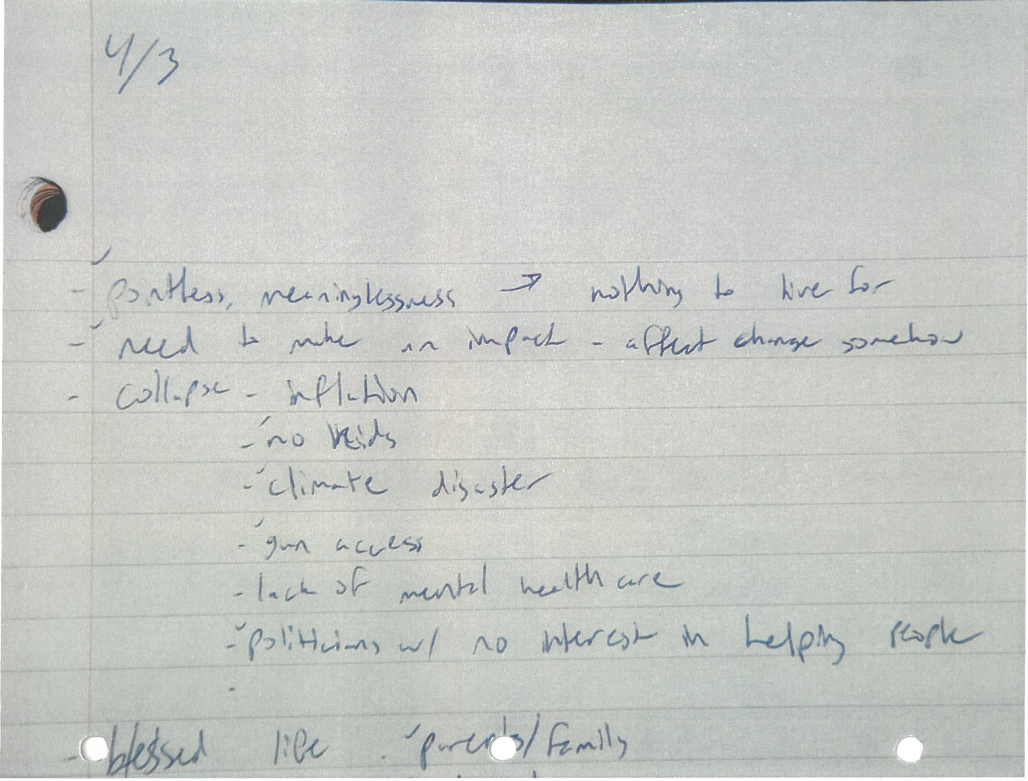 4/3
- pointless, meaninglessness → nothing to live for
- need to make an impact - affect change somehow
- collapse - inflation
- no kids
- climate disaster
- gun access
- lack of mental healthcare
- politicians w/ no interest in helping people
-
- blessed life . parents/family